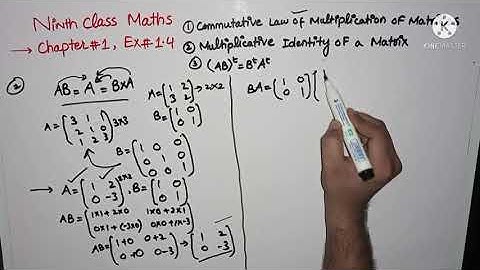 Ninth Class Maths
→ Chapter#1, Ex#1.4
① Commutative Law of Multiplication Of Matrices
② Multiplicative Identity Of a Matrix
③ (AB)ᵗ=BᵗAᵗ
② AB = A = BxA
A=(1 2
3 2)→2x2
A=(3 1 1
2 1 0
1 2 3)3x3
B=(1 0
0 1)
B=(1 0 0
0 1 0
0 0 1)
→ A=(1 2
0 -3)2x2, B=(1 0
0 1)
AB=(1x1+2x0 1x0+2x1
0x1+(-3x0) 0x0+1x-3)
AB=(1+0 0+2
0+0 0-3)→(1 2
0 -3)
BA=(1 0
0 1)(
KINEMASTER